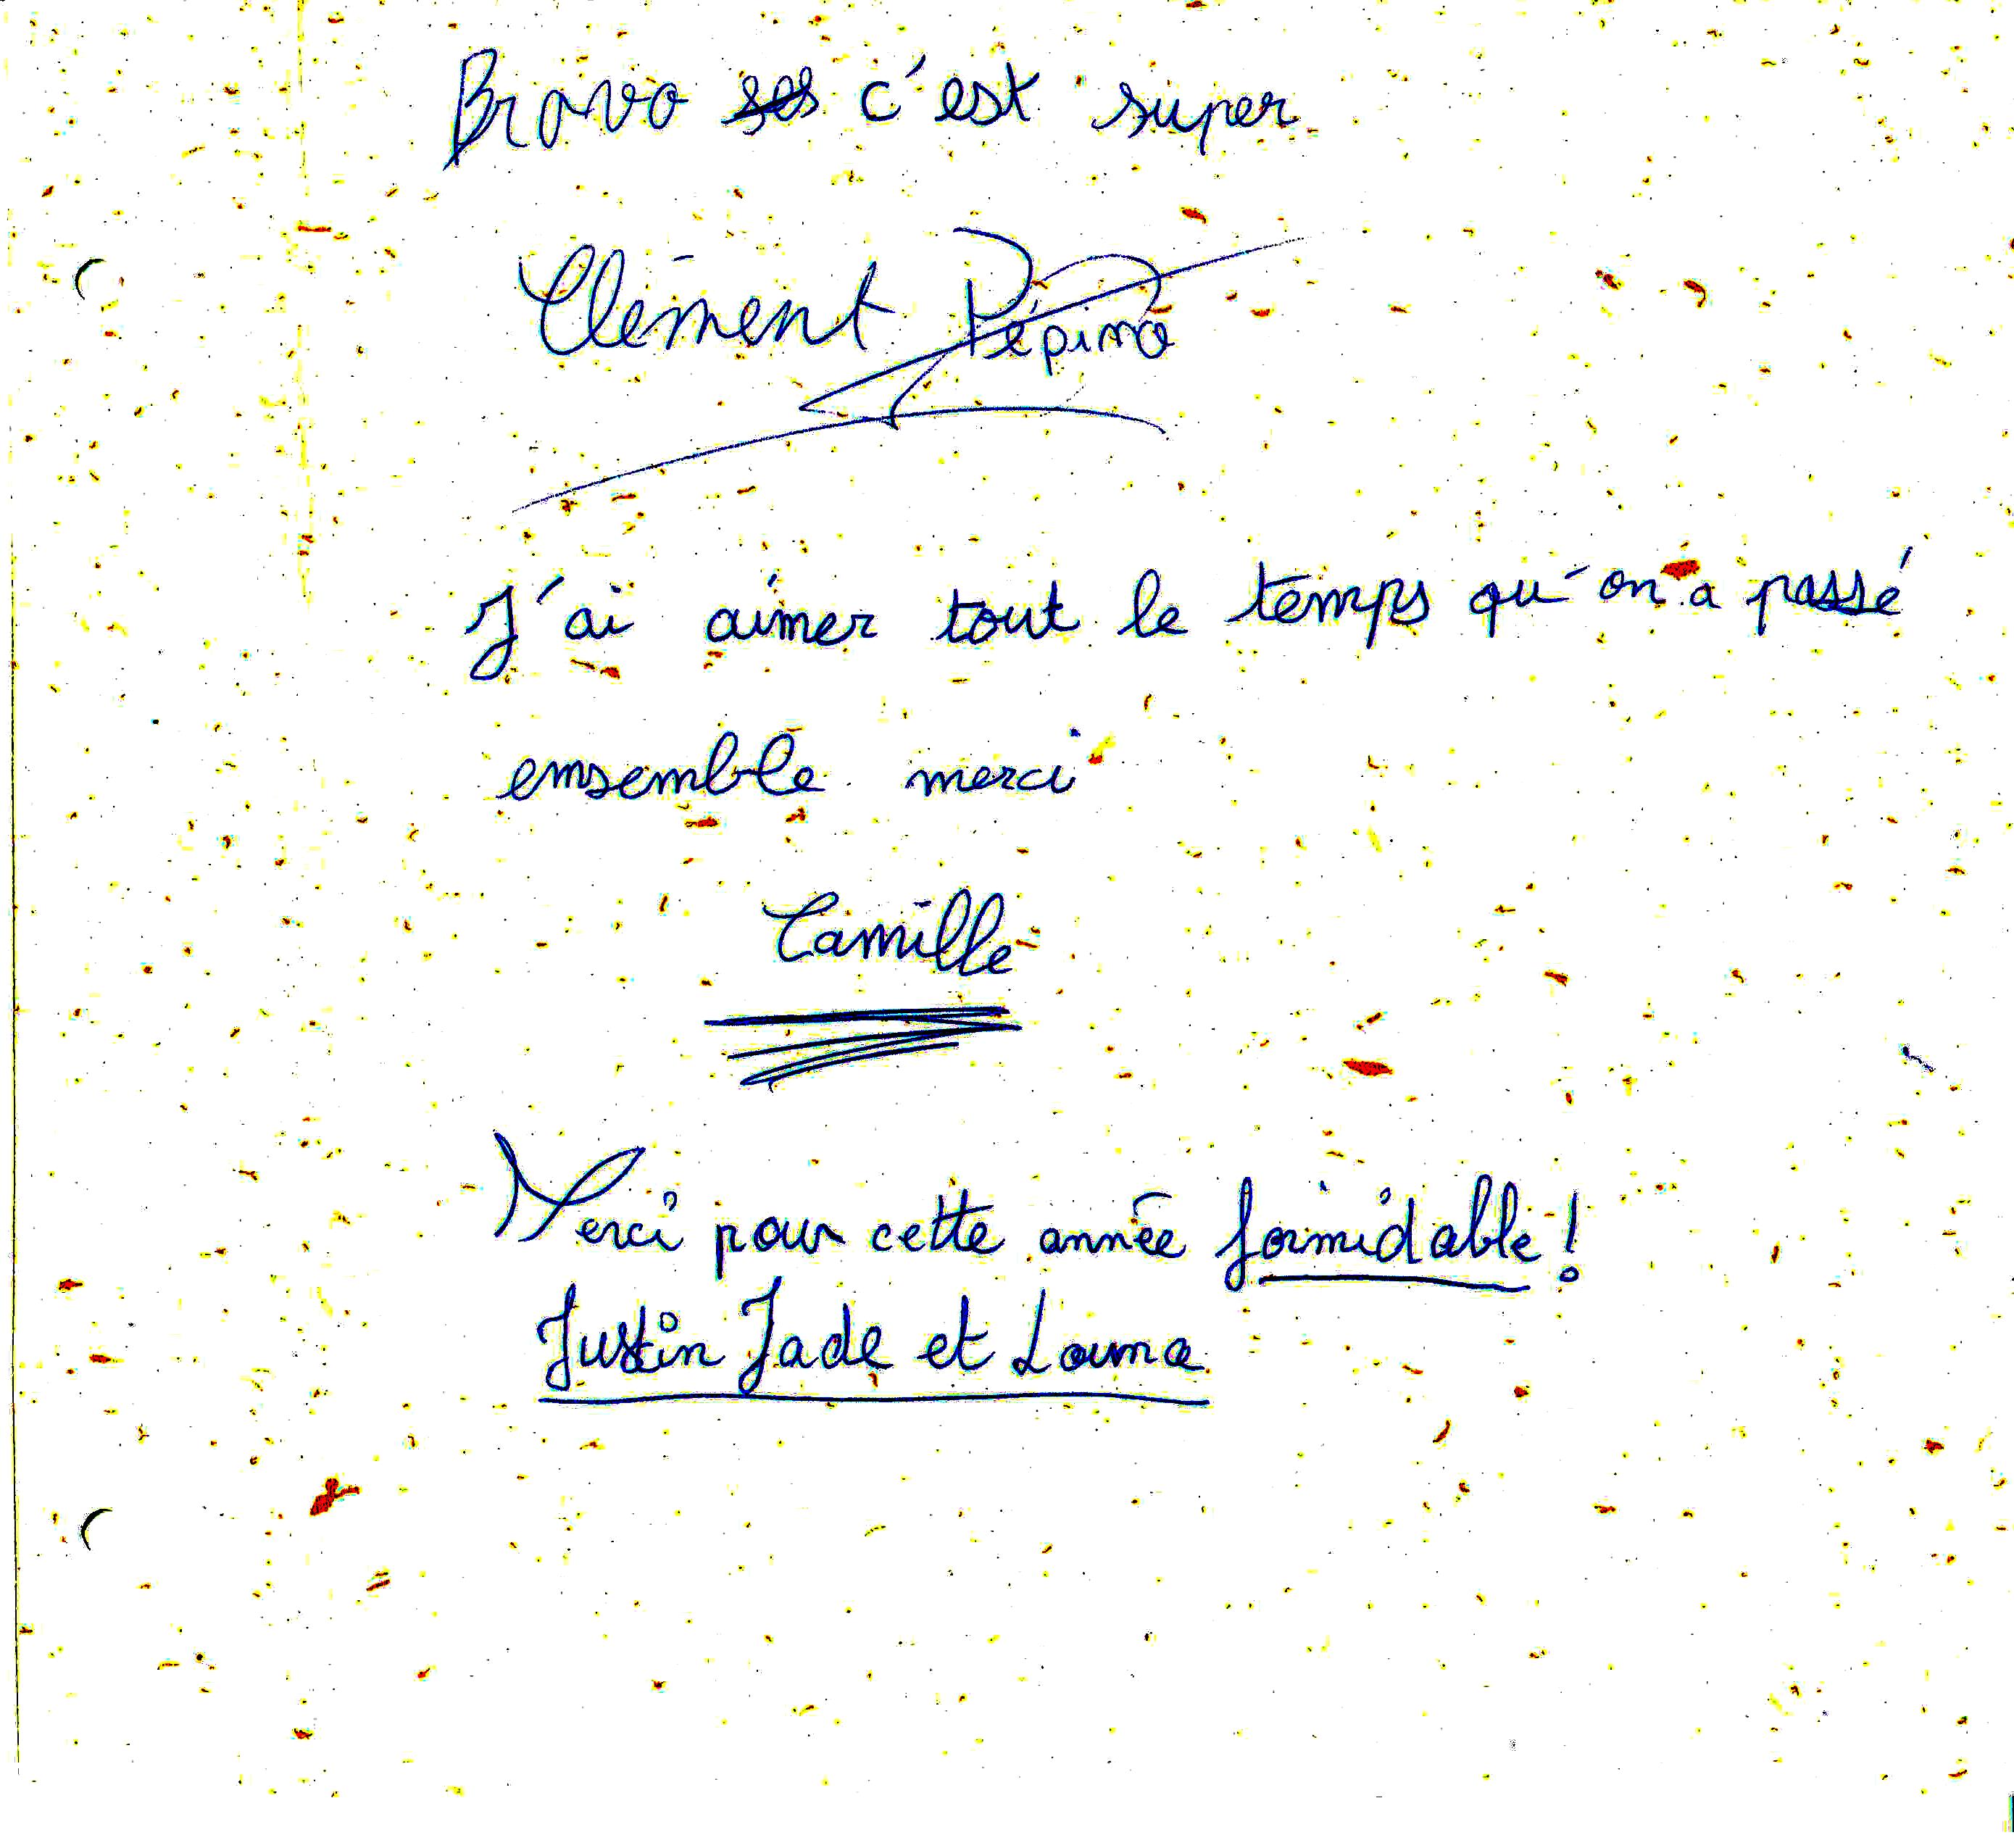 Bravo c'est super
Clément Pépino
J'ai aimer tout le temps qu'on a passé
ensemble merci
Camille
Merci pour cette année formidable !
Justin Jade et Louna